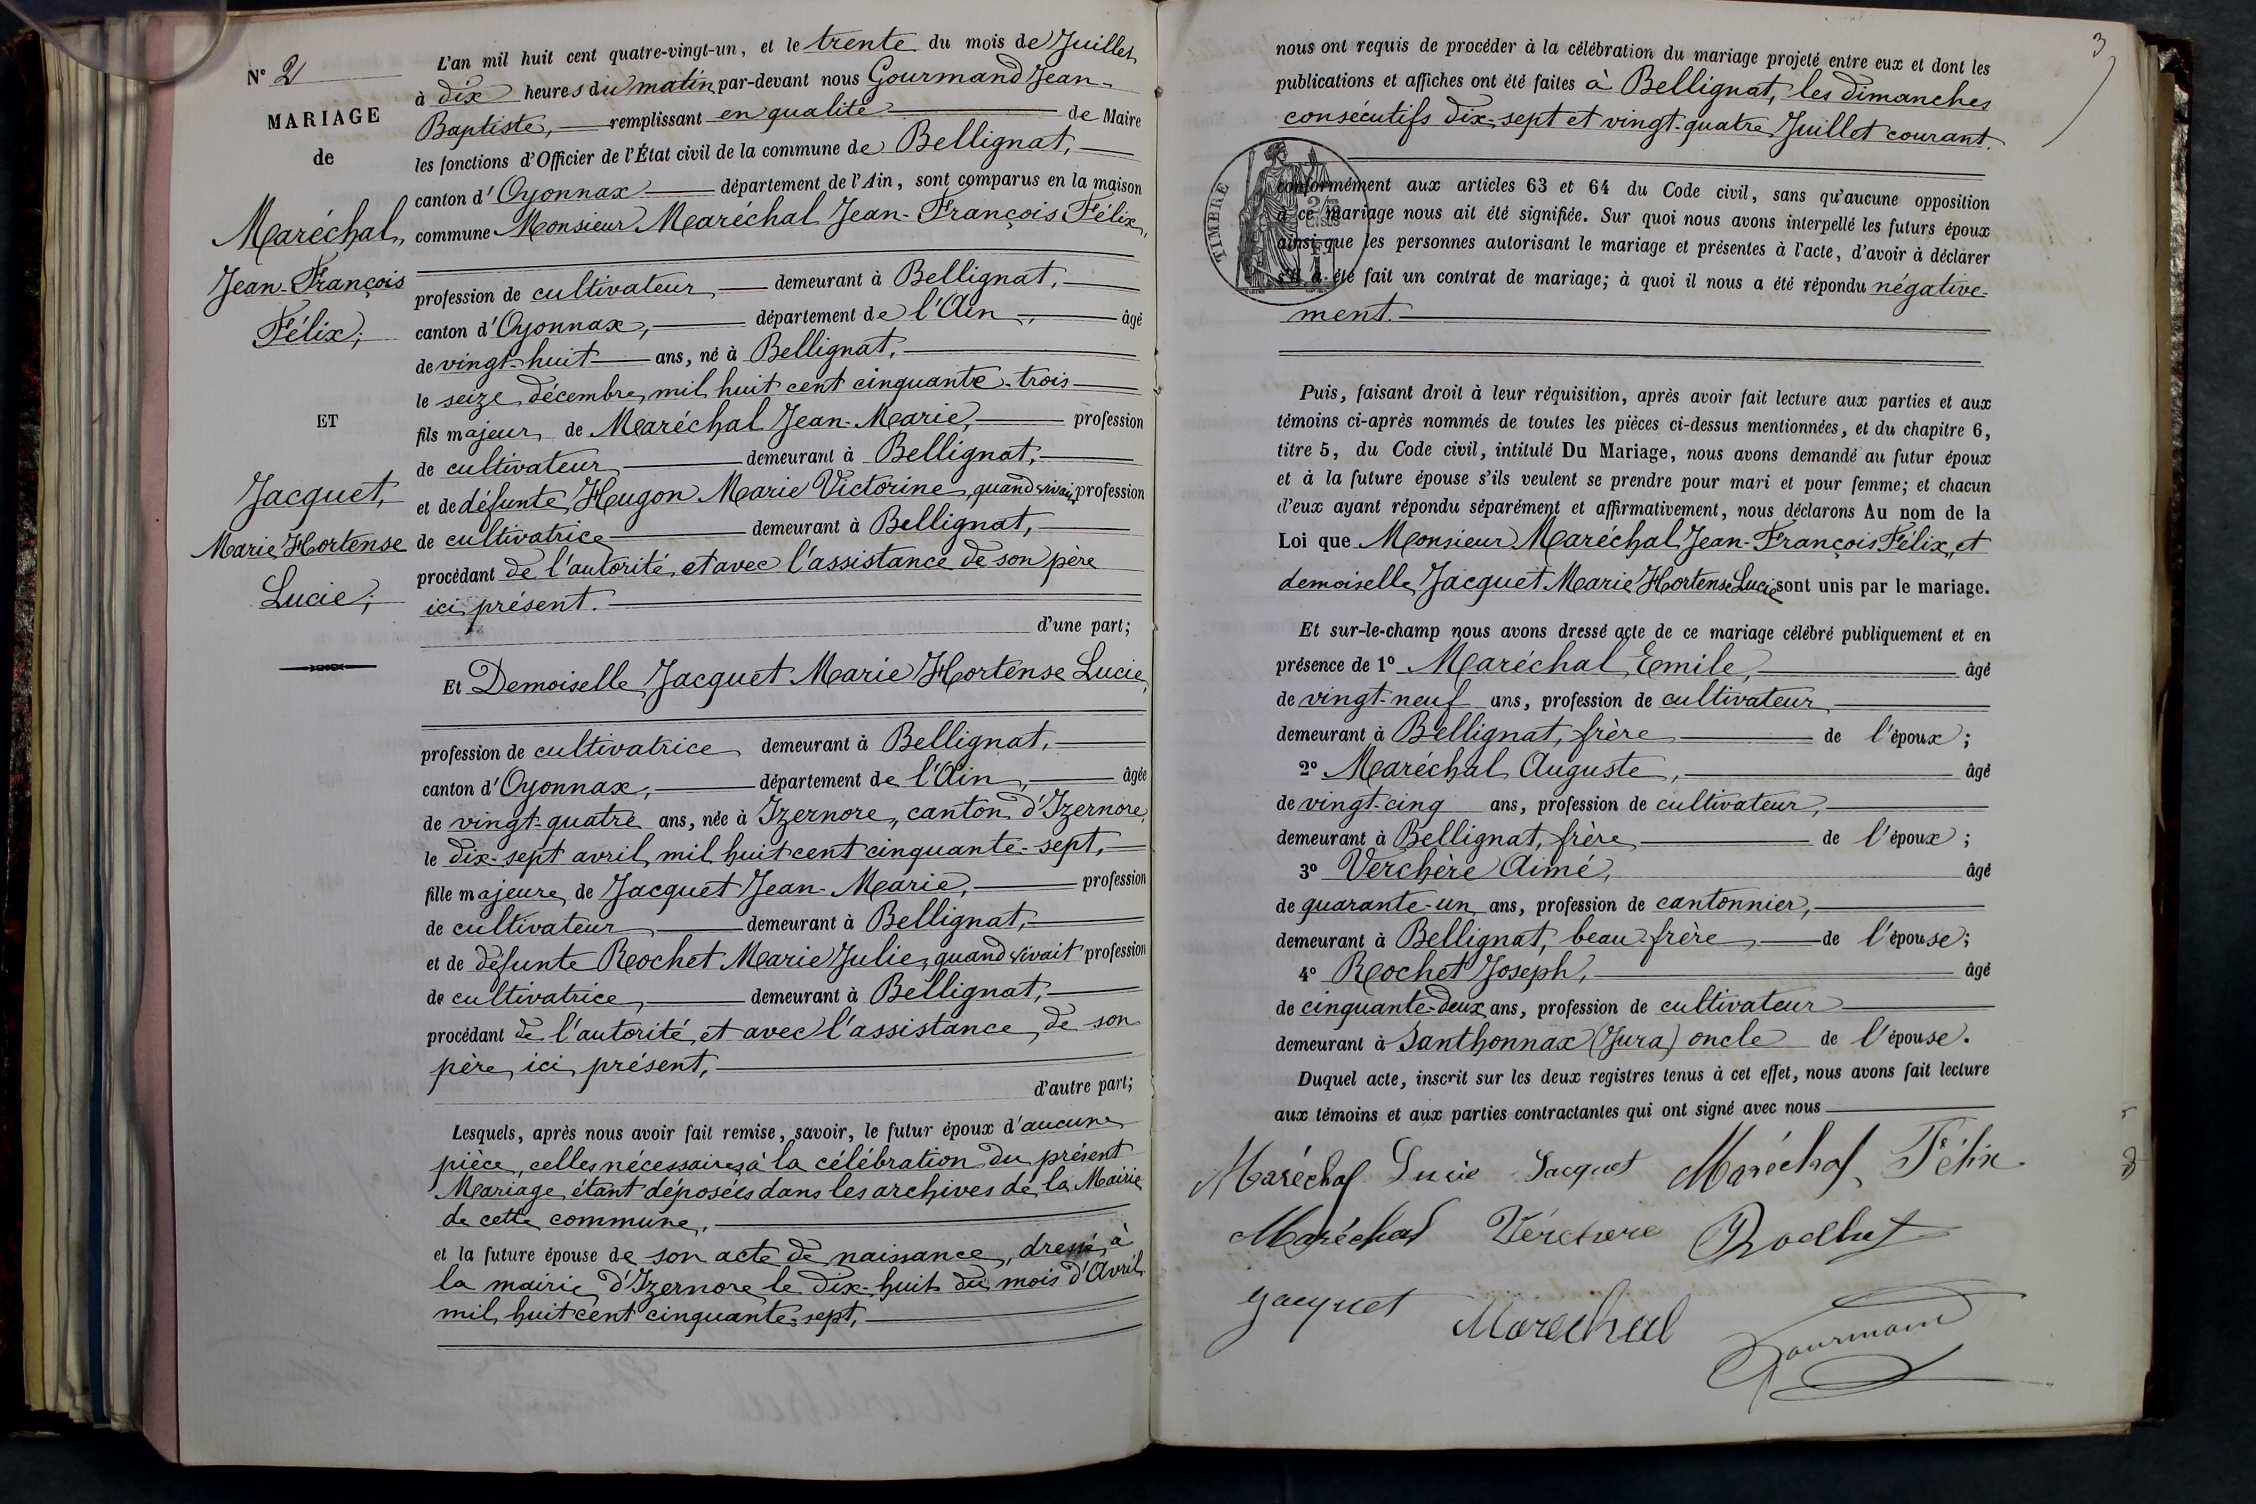 N° 2
MARIAGE
de
Maréchal,
Jean-François
Félix;
ET
Jacquet,
Marie Hortense
Lucie;
L'an mil huit cent quatre-vingt-un, et le trente du mois de Juillet,
à dix heures du matin par-devant nous Gourmand Jean-
Baptiste, remplissant en qualité de Maire
les fonctions d'Officier de l'État civil de la commune de Bellignat,
canton d'Oyonnax département de l'Ain, sont comparus en la maison
commune Monsieur Maréchal Jean-François Félix,
profession de cultivateur demeurant à Bellignat,
canton d'Oyonnax, département de l'Ain, âgé
de vingt-huit ans, né à Bellignat,
le seize décembre mil huit cent cinquante-trois
fils majeur de Maréchal Jean-Marie, profession
de cultivateur demeurant à Bellignat,
et de défunte Hugon Marie Victorine, quand vivait, profession
de cultivatrice demeurant à Bellignat,
procédant de l'autorité et avec l'assistance de son père
ici présent.
d'une part;
Et Demoiselle Jacquet Marie Hortense Lucie,
profession de cultivatrice demeurant à Bellignat,
canton d'Oyonnax, département de l'Ain, âgée
de vingt-quatre ans, née à Izernore, canton d'Izernore,
le dix-sept avril mil huit cent cinquante-sept,
fille majeure de Jacquet Jean-Marie, profession
de cultivateur demeurant à Bellignat,
et de défunte Rochet Marie Julie, quand vivait profession
de cultivatrice, demeurant à Bellignat,
procédant de l'autorité et avec l'assistance de son
père ici présent,
d'autre part;
Lesquels, après nous avoir fait remise, savoir, le futur époux d'aucune
pièce, celles nécessaires à la célébration du présent
Mariage étant déposées dans les archives de la Mairie
de cette commune,
et la future épouse de son acte de naissance, dressé à
la mairie d'Izernore le dix-huit du mois d'Avril
mil huit cent cinquante-sept,
3
nous ont requis de procéder à la célébration du mariage projeté entre eux et dont les
publications et affiches ont été faites à Bellignat, les dimanches
consécutifs dix-sept et vingt-quatre Juillet courant.
TIMBRE
conformément aux articles 63 et 64 du Code civil, sans qu'aucune opposition
à ce mariage nous ait été signifiée. Sur quoi nous avons interpellé les futurs époux
ainsi que les personnes autorisant le mariage et présentes à l'acte, d'avoir à déclarer
s'il a été fait un contrat de mariage; à quoi il nous a été répondu négative-
ment.
Puis, faisant droit à leur réquisition, après avoir fait lecture aux parties et aux
témoins ci-après nommés de toutes les pièces ci-dessus mentionnées, et du chapitre 6,
titre 5, du Code civil, intitulé Du Mariage, nous avons demandé au futur époux
et à la future épouse s'ils veulent se prendre pour mari et pour femme; et chacun
d'eux ayant répondu séparément et affirmativement, nous déclarons Au nom de la
Loi que Monsieur Maréchal Jean-François Félix, et
demoiselle Jacquet Marie Hortense Lucie sont unis par le mariage.
Et sur-le-champ nous avons dressé acte de ce mariage célébré publiquement et en
présence de 1° Maréchal Emile, âgé
de vingt-neuf ans, profession de cultivateur
demeurant à Bellignat, frère de l'époux;
2° Maréchal Auguste, âgé
de vingt-cinq ans, profession de cultivateur,
demeurant à Bellignat, frère de l'époux;
3° Verchère Aimé, âgé
de quarante-un ans, profession de cantonnier,
demeurant à Bellignat, beau-frère de l'épouse;
4° Rochet Joseph, âgé
de cinquante-deux ans, profession de cultivateur
demeurant à Santhonnax (Jura) oncle de l'épouse.
Duquel acte, inscrit sur les deux registres tenus à cet effet, nous avons fait lecture
aux témoins et aux parties contractantes qui ont signé avec nous
Maréchal Lucie Jacquet Maréchal Félix
Maréchal Verchere Rochet
Jacquet Marechal Gourmand